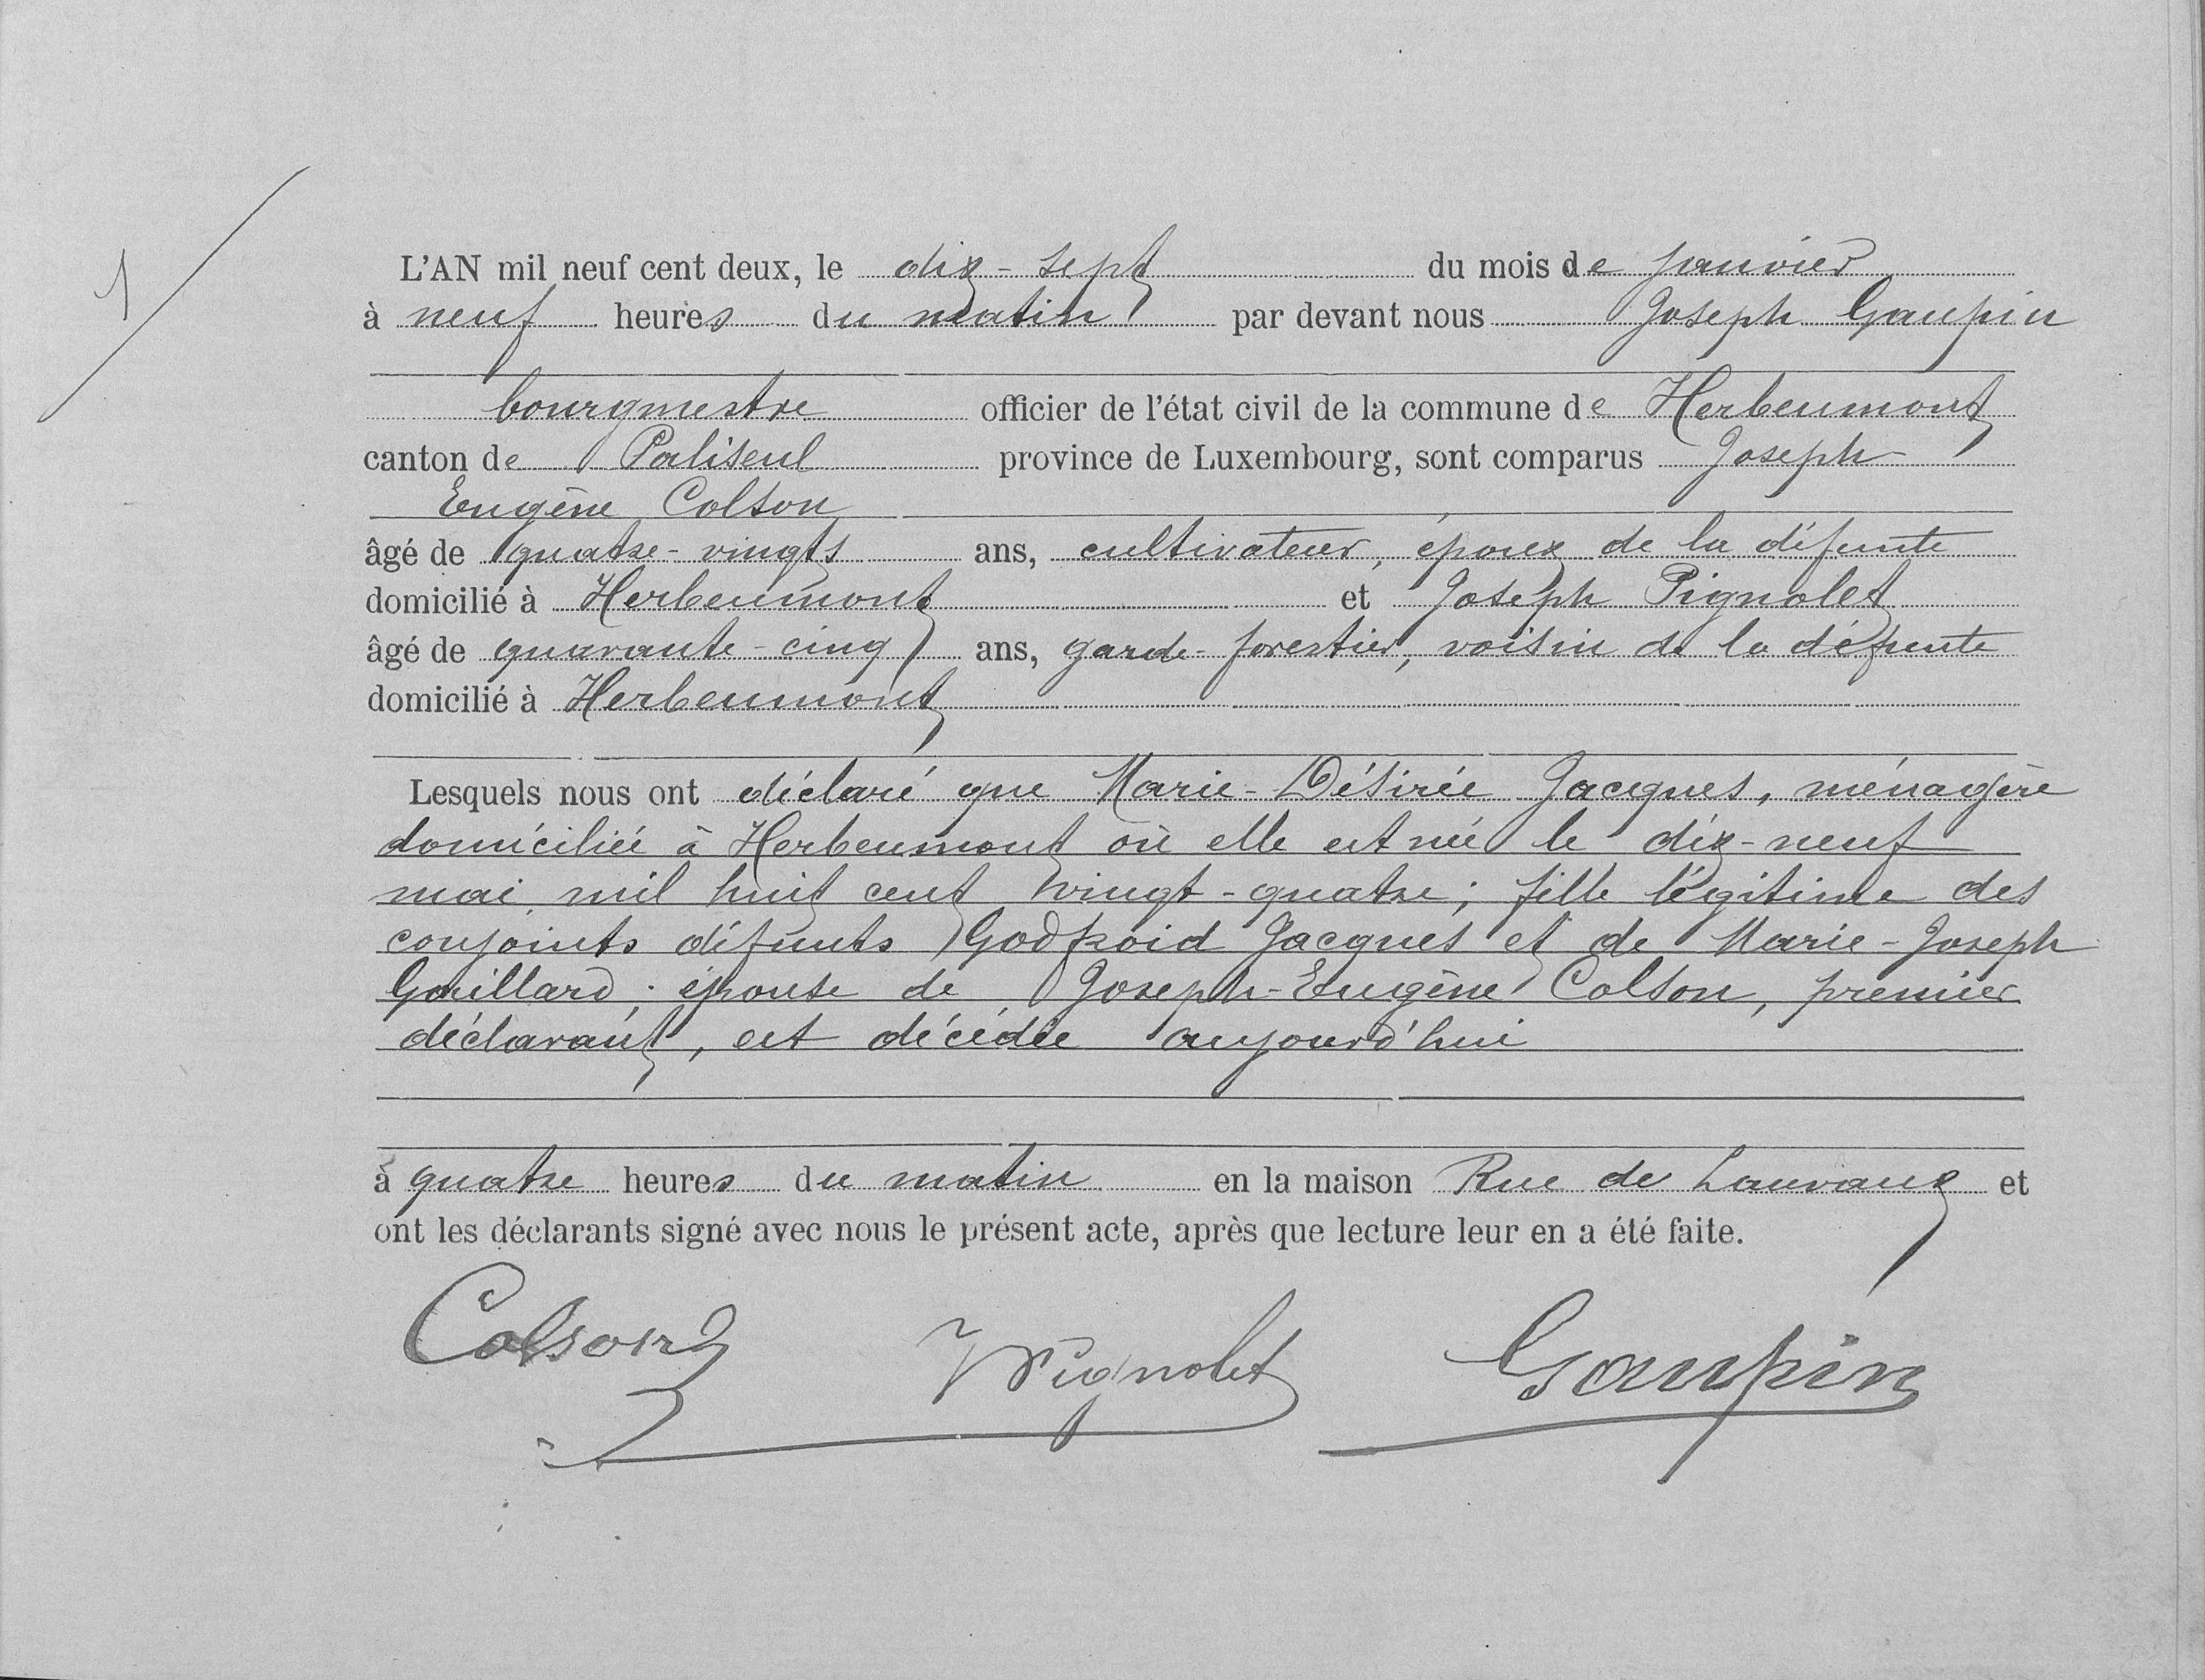 1
L'AN mil neuf cent deux, le dix-sept du mois de janvier
à neuf heures du matin par devant nous Joseph Gaupin
bourgmestre officier de l'état civil de la commune de Herbeumont
canton de Paliseul province de Luxembourg, sont comparus Joseph
Eugène Colson
âgé de quatre-vingts ans, cultivateur, époux de la défunte
domicilié à Herbeumont et Joseph Pignolet
âgé de quarante-cinq ans, garde-forestier, voisin de la défunte
domicilié à Herbeumont
Lesquels nous ont déclaré que Marie-Désirée Jacques, ménagère
domiciliée à Herbeumont où elle est née le dix-neuf
mai mil huit cent vingt-quatre; fille légitime des
conjoints défunts Godfroid Jacques et de Marie-Joseph
Gouillard; épouse de Joseph-Eugène Colson, premier
déclarant, est décédée aujourd'hui
à quatre heures du matin en la maison Rue de Lauvaux et
ont les déclarants signé avec nous le présent acte, après que lecture leur en a été faite.
Colson Pignolet Gaupin